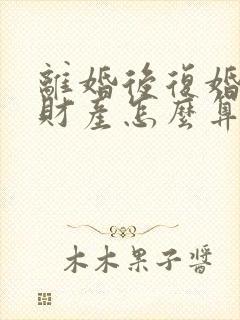 離婚後復婚
財產怎麼算
木木果子醬